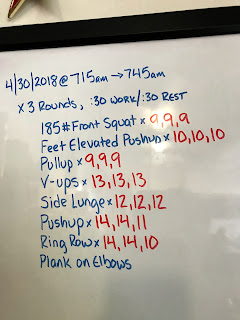 4/30/2018 @ 715am → 745am
x 3 Rounds, :30 work/:30 Rest
185# Front Squat x 9,9,9
Feet Elevated Pushup x 10,10,10
Pullup x 9,9,9
V-ups x 13,13,13
Side Lunge x 12,12,12
Pushup x 14,14,11
Ring Row x 14,14,10
Plank on Elbows